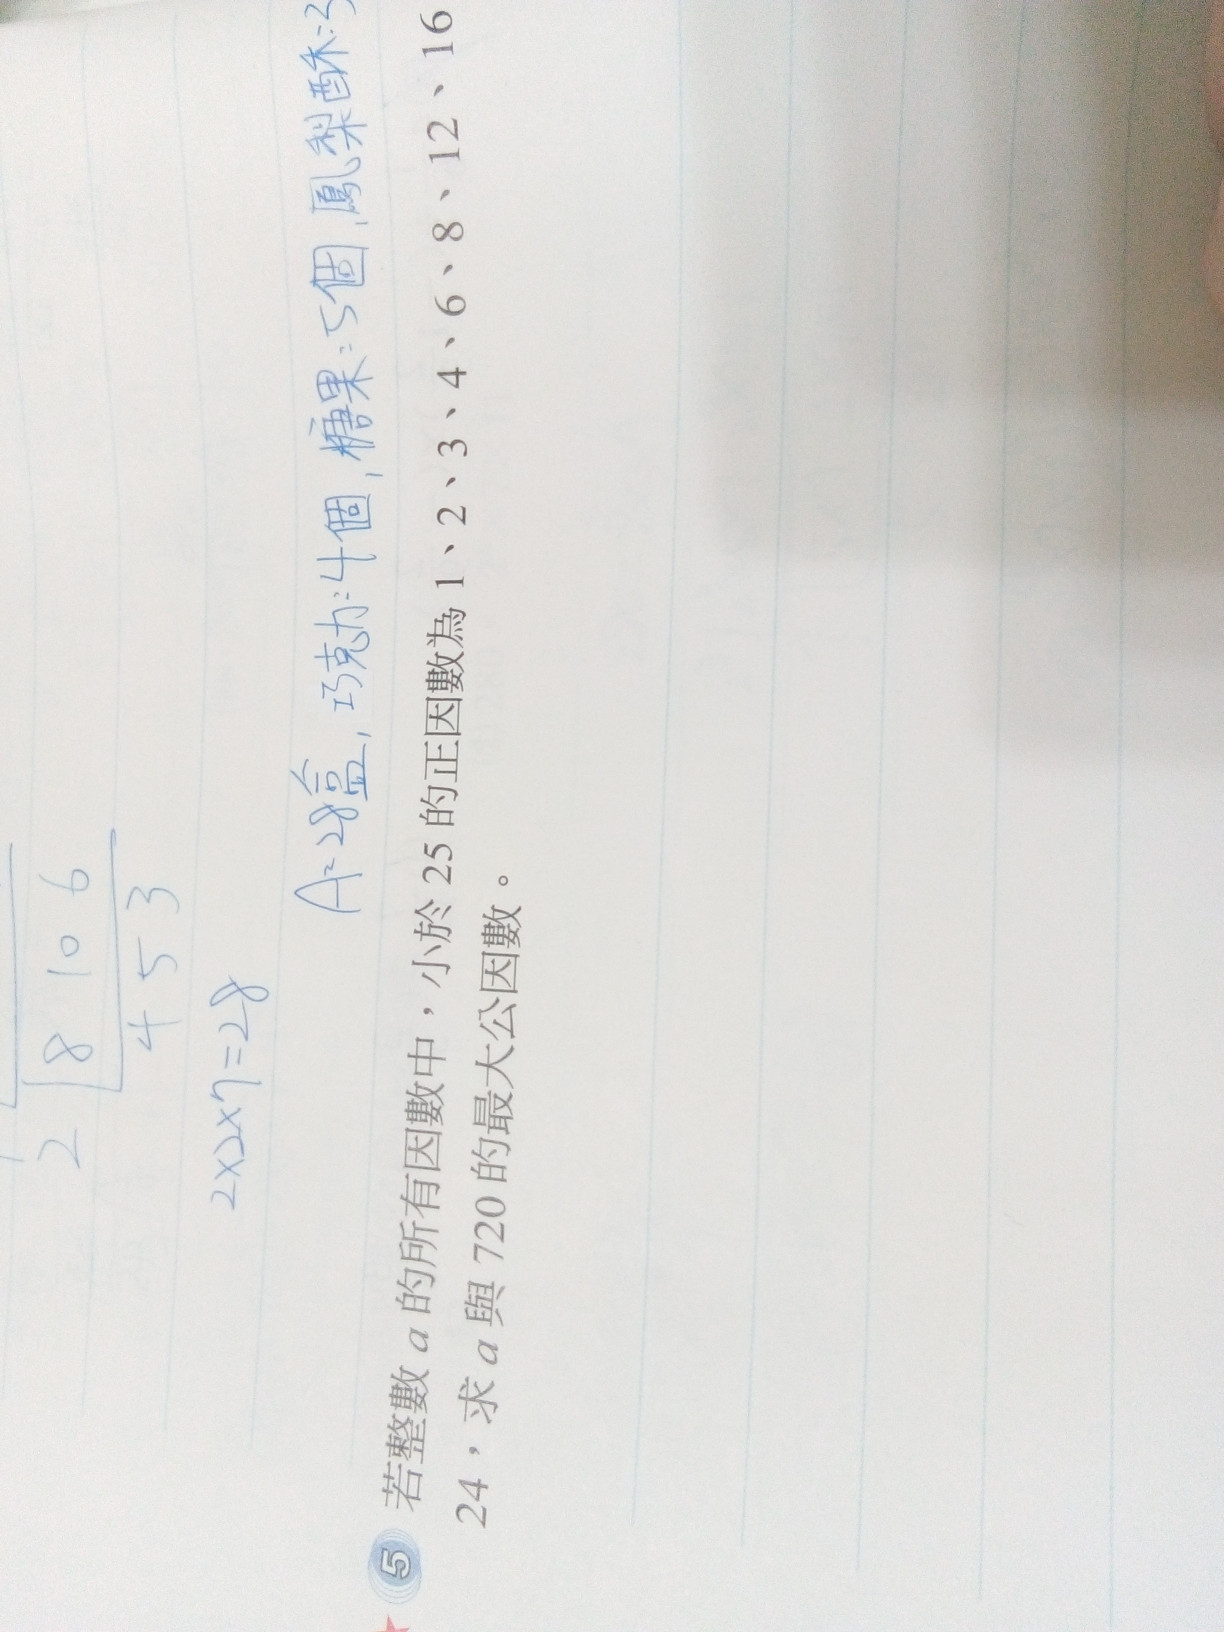 2 8 10 6
4 5 3
2×2×7=28
A=28盒,巧克力:4個,糖果:5個,鳳梨酥:3
5 若整數 a 的所有因數中,小於 25 的正因數為 1、2、3、4、6、8、12、16
24,求 a 與 720 的最大公因數。